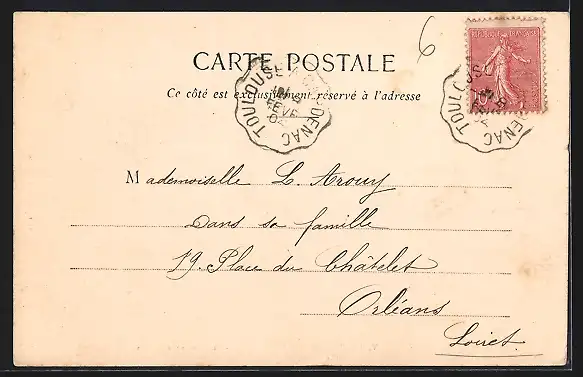 6
REPUBLIQUE FRANÇAISE
CARTE POSTALE
Ce côté est exclusivement réservé à l'adresse
TOULOUSE A CAPDENAC
FEVR
04
TOULOUSE
DENAC
10
Mademoiselle L. Arouy
Dans sa famille
19. Place du Châtelet
Orléans
Loiret